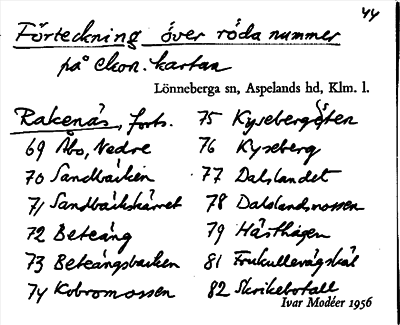 44
Förteckning över röda nummer
på ekon. kartan
Lönneberga sn, Aspelands hd, Klm. l.
Rakenäs, forts.
69 Åbo, Nedre
70 Sandbäcken
71 Sandbäckskärret
72 Beteäng
73 Beteängsbacken
74 Kobromossen
75 Kyseberg
76 Kyseberg
77 Dalslandet
78 Dalslandsmossen
79 Hästhagen
81
82 Skrikebotall
Ivar Modéer 1956